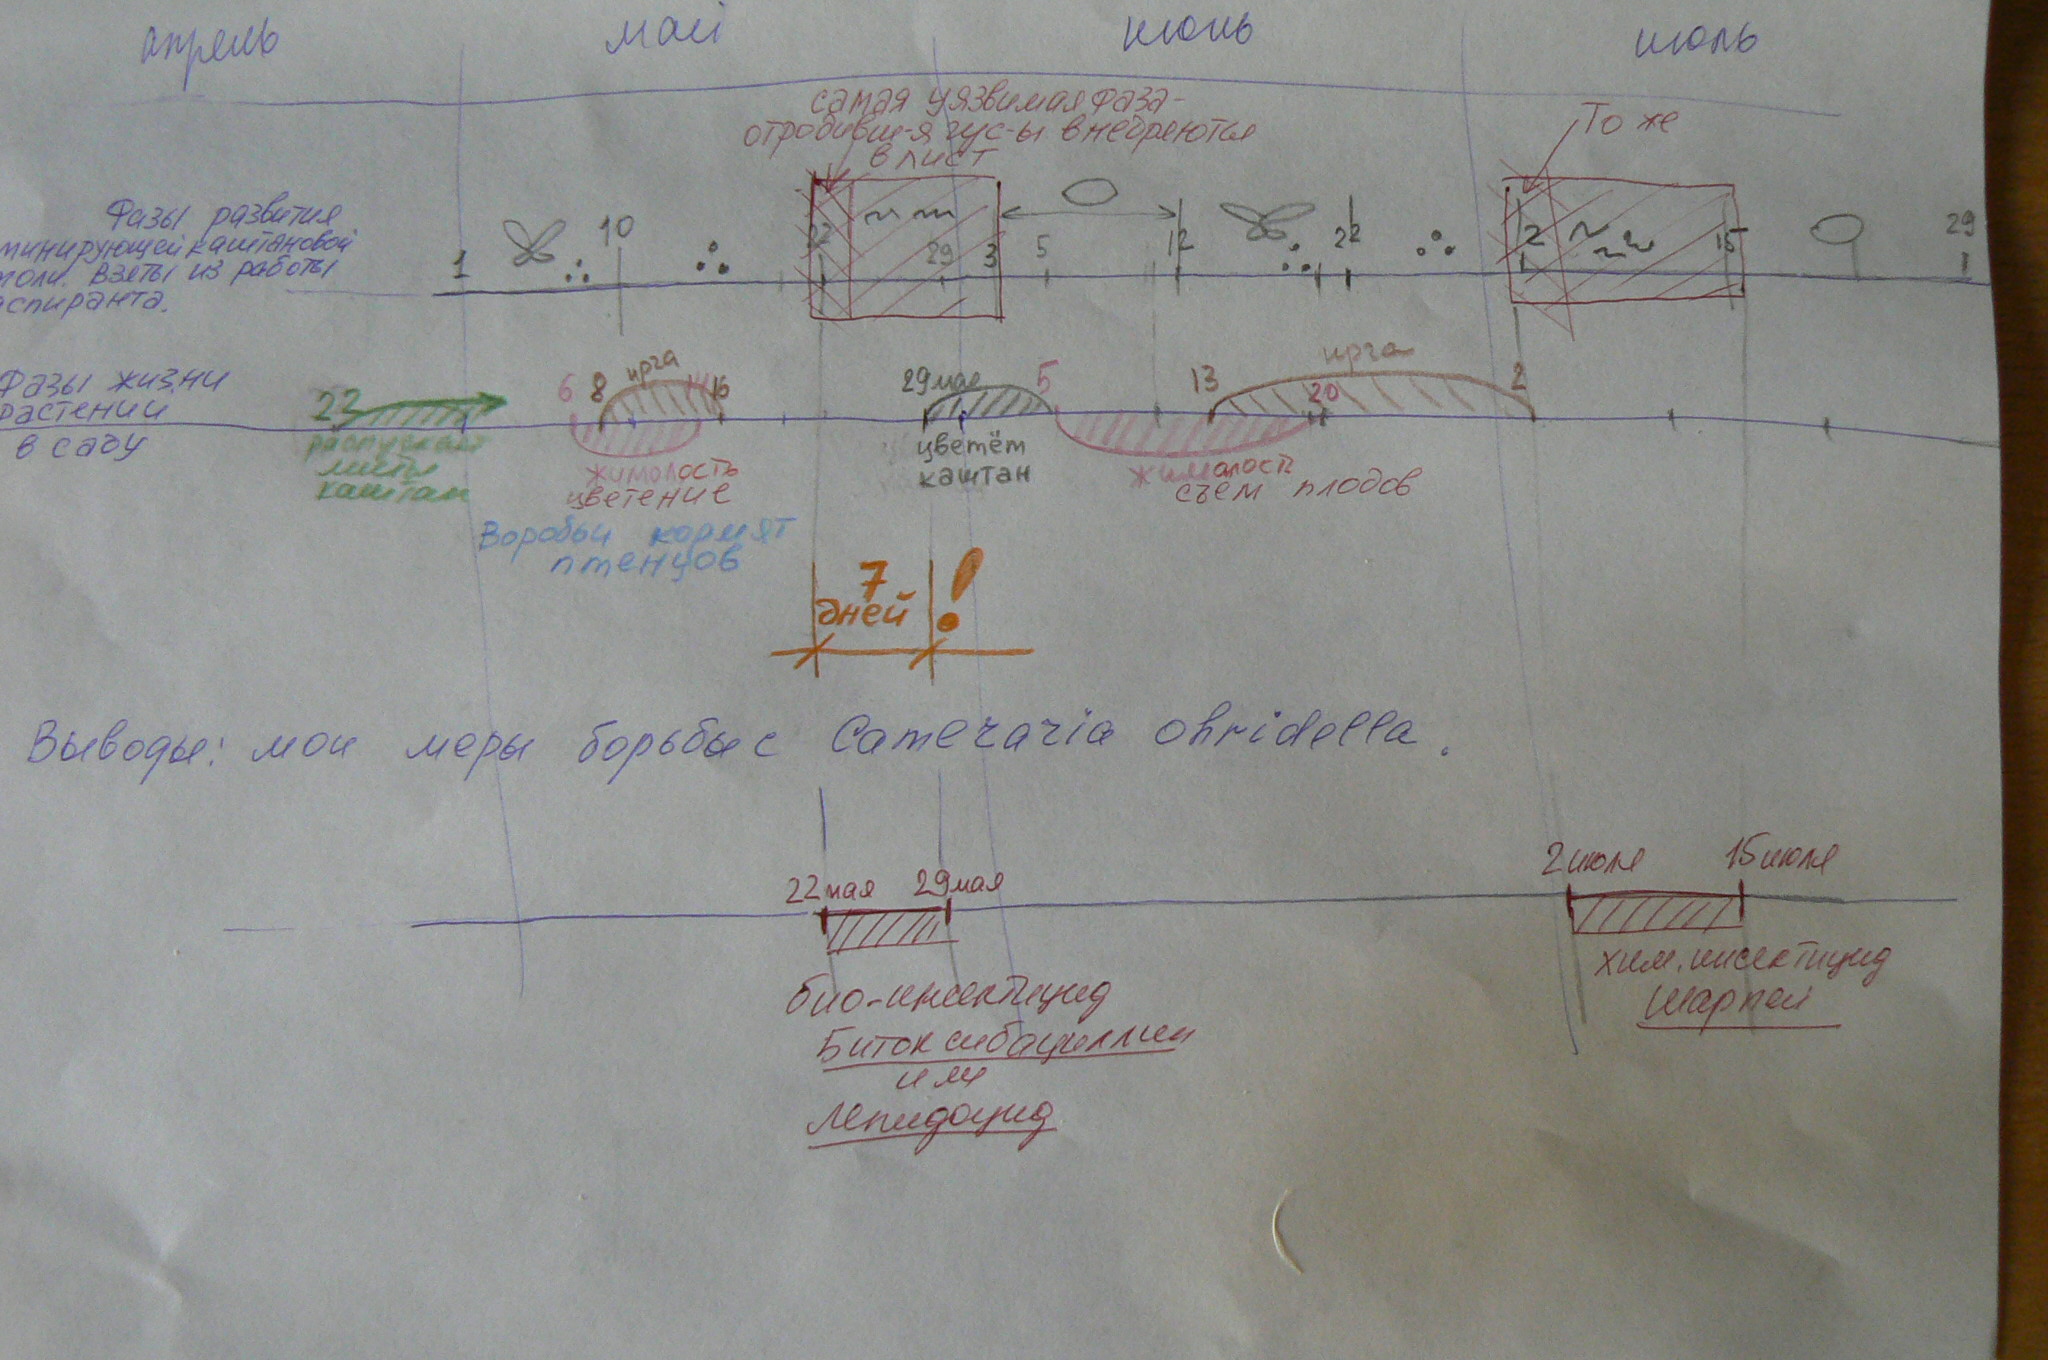 апрель май июнь июль
самая уязвимая фаза-
отродивш-я гус-ы внедреются
в лист
То же
Фазы развития
минирующей каштановой
моли. Взеты из работы
аспиранта.
1 10 22 29 3 5 12 22 2 15 29
Фазы жизни
растений
в саду
22
распускает
листы
каштан
6 8 ирга 16
жимолость
цветение
29 мая 5
цветёт
каштан
13 ирга 20 2
жимолость
съем плодов
Воробьи кормят
птенцов
7
дней !
Выводы: мои меры борьбы с Cameraria ohridella.
22 мая 29 мая 2 июля 15 июля
био-инсектицид
Битоксибациллин
или
Лепидоцид
хим. инсектицид
Шарпей